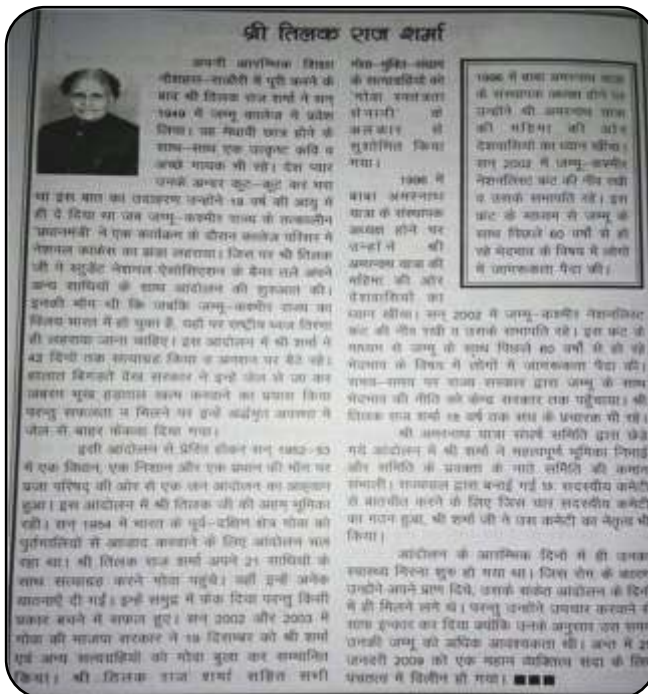 श्री तिलक राज शर्मा
अपनी आरम्भिक शिक्षा
में पूरी करने के
बाद श्री तिलक राज शर्मा ने सन्
1949 में जम्मू कालेज में प्रवेश
लिया। वह मेधावी छात्र होने के
साथ-साथ एक उत्कृष्ट कवि व
अच्छे गायक भी रहे। देश प्यार
उनके अन्दर कूट-कूट कर भरा
था इस बात का उदाहरण उन्होंने 18 वर्ष की आयु में
ही दे दिया था जब जम्मू-कश्मीर राज्य के तत्कालीन
'प्रधानमंत्री' ने एक कार्यक्रम के दौरान कालेज परिसर में
नेशनल कांफ्रेंस का झंडा लहराया। जिस पर श्री तिलक
जी ने स्टूडेंट नेशनल ऐसोसिएशन के बैनर तले अपने
अन्य साथियों के साथ आंदोलन की शुरुआत की।
इनकी माँग थी कि जबकि जम्मू-कश्मीर राज्य का
विलय भारत में हो चुका है, यहाँ पर राष्ट्रीय ध्वज तिरंगा
ही लहराया जाना चाहिए। इस आदोलन में श्री शर्मा ने
42 दिनों तक सत्याग्रह किया व अनशन पर बैठे रहे।
हालात बिगड़ते देख सरकार ने इन्हें जेल ले जा कर
जबरन भूख हड़ताल खत्म करवाने का प्रयास किया
परन्तु सफलता न मिलने पर इन्हें अवस्था में
जेल से बाहर फेंकवा दिया गया।
इसी आंदोलन से प्रेरित होकर सन् 1952-53
में एक विधान, एक निशान और एक प्रधान की माँग पर
प्रजा परिषद् की ओर से एक जन आंदोलन का आह्वान
हुआ। इस आंदोलन में श्री तिलक जी की अहम् भूमिका
रही। सन् 1954 में भारत के पूर्व-दक्षिण क्षेत्र गोवा को
पुर्तगालियों से आजाद करवाने के लिए आंदोलन चल
रहा था। श्री तिलक राज शर्मा अपने 21 साथियों के
साथ सत्याग्रह करने गोवा पहुंचे। वहाँ इन्हें अनेक
यातनाएँ दी गईं। इन्हें समुद्र में फेंक दिया परन्तु किसी
प्रकार बचने में सफल हुए। सन् 2002 और 2003 में
गोवा की भाजपा सरकार ने 19 दिसम्बर को श्री शर्मा
एवं अन्य सत्यग्रहियों को गोवा बुला कर सम्मानित
किया। श्री तिलक राज शर्मा सहित सभी
गोवा-मुक्ति-संग्राम
के सत्याग्रहियों को
'गोवा स्वतंत्रता
सेनानी' के
अलंकार से
सुशोभित किया
गया।
1996 में
बाबा अमरनाथ
यात्रा के संस्थापक
अध्यक्ष होने पर
उन्होंने श्री
अमरनाथ यात्रा की
महिमा की ओर
देशवासियों का
ध्यान खींचा। सन् 2002 में जम्मू-कश्मीर नेशनलिस्ट
फ्रंट की नींव रखी व उसके सभापति रहे। इस फ्रंट के
माध्यम से जम्मू के साथ पिछले 60 वर्षों से हो रहे
भेदभाव के विषय में लोगों में जागरूकता पैदा की।
समय-समय पर राज्य सरकार द्वारा जम्मू के साथ
भेदभाव की नीति को केन्द्र सरकार तक पहुँचाया। श्री
तिलक राज शर्मा 18 वर्ष तक संघ के प्रचारक भी रहे।
श्री अमरनाथ यात्रा संघर्ष समिति द्वारा छेड़े
गये आंदोलन में श्री शर्मा ने महत्वपूर्ण भूमिका निभाई
और समिति के प्रवक्ता के नाते समिति की कमान
संभाली। राज्यपाल द्वारा बनाई गई सदस्यीय कमेटी
से बातचीत करने के लिए जिस चार सदस्यीय कमेटी
का गठन हुआ, श्री शर्मा जी ने उस कमेटी का नेतृत्व भी
किया।
आंदोलन के आरम्भिक दिनों में ही उनका
स्वास्थ्य गिरना शुरु हो गया था। जिस रोग के कारण
उन्होंने अपने प्राण दिये, उसके संकेत आंदोलन के दिनों
में ही मिलने लगे थे। परन्तु उन्होंने उपचार करवाने से
साफ इन्कार कर दिया क्योंकि उनके अनुसार उस समय
उनकी जम्मू को अधिक आवश्यकता थी। अन्त में
जनवरी 2009 को एक महान व्यक्तित्व सदा के लिए
पंचतत्व में विलीन हो गया।
1996 में बाबा अमरनाथ यात्रा
के संस्थापक अध्यक्ष होने पर
उन्होंने श्री अमरनाथ यात्रा
की महिमा की ओर
देशवासियों का ध्यान खींचा।
सन् 2002 में जम्मू-कश्मीर
नेशनलिस्ट फ्रंट की नींव रखी
व उसके सभापति रहे। इस
फ्रंट के माध्यम से जम्मू के
साथ पिछले 60 वर्षों से हो
रहे भेदभाव के विषय में लोगों
में जागरूकता पैदा की।